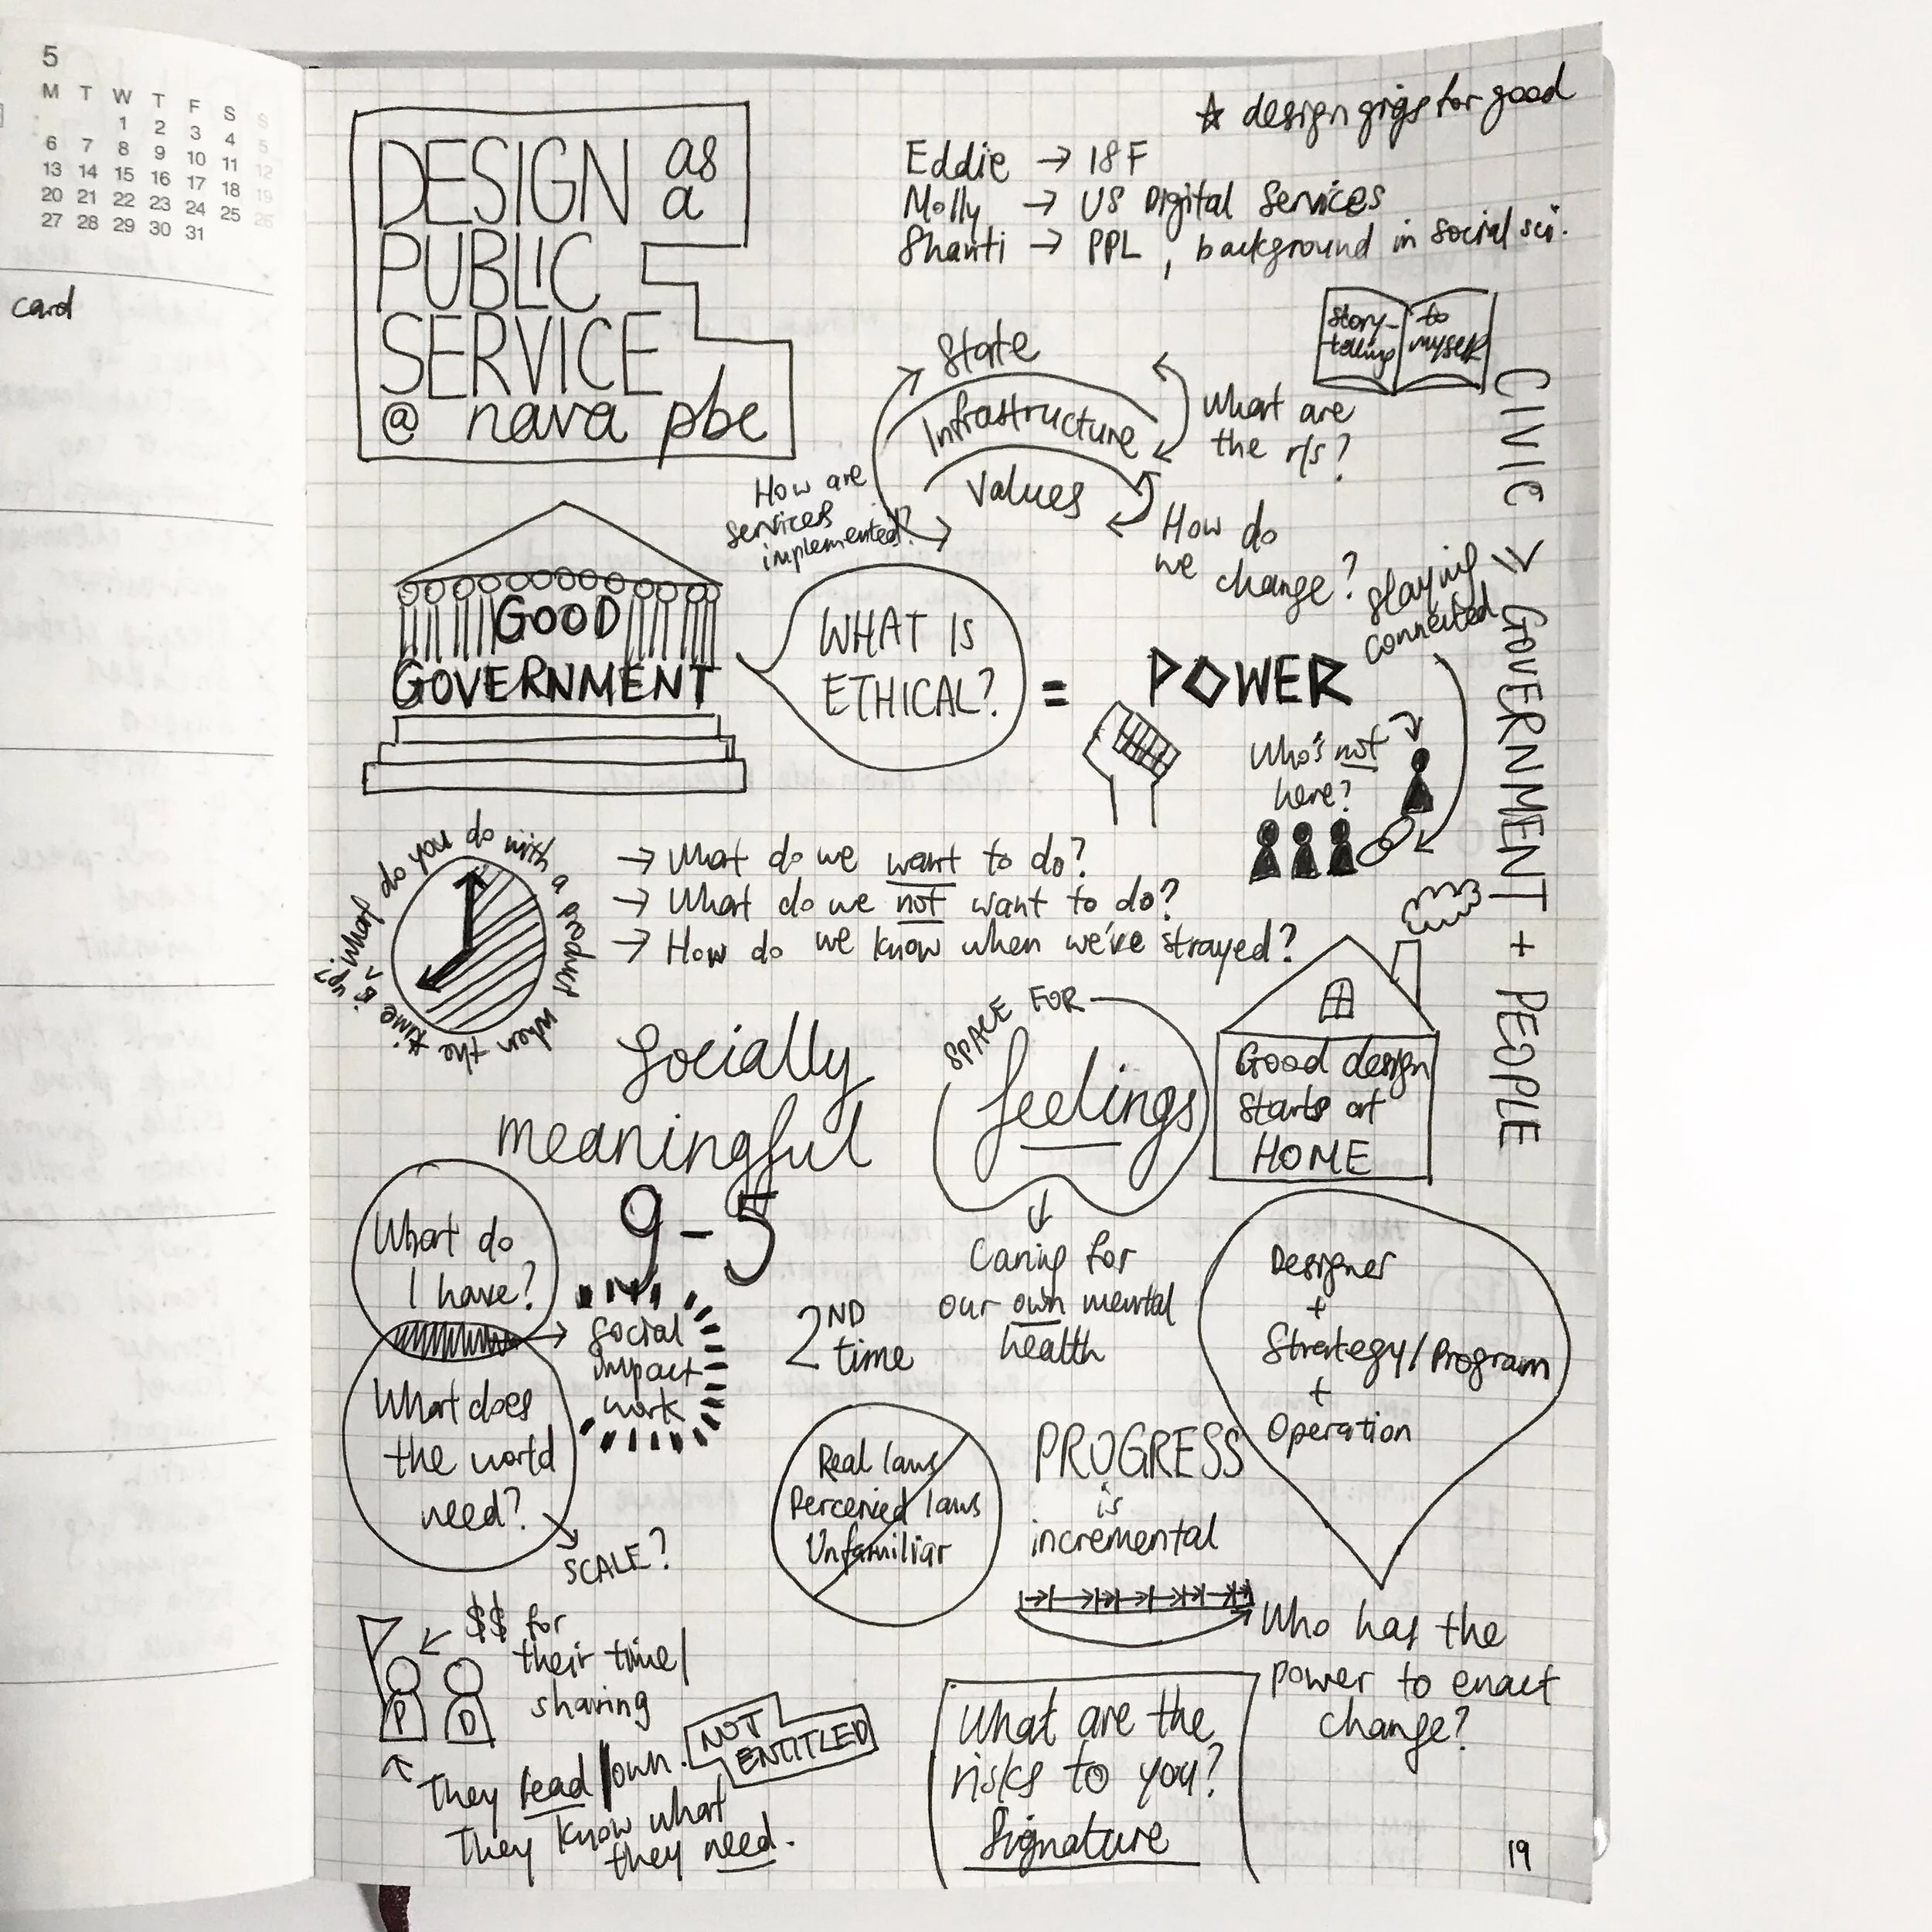 5
M T W T F S S
1 2 3 4 5
6 7 8 9 10 11 12
13 14 15 16 17 18 19
20 21 22 23 24 25 26
27 28 29 30 31
card
DESIGN as a
PUBLIC
SERVICE
@ nava pbc
☆ design gigs for good
Eddie → 18F
Molly → US Digital Services
Shanti → PPL, background in social sci.
State
Infrastructure
Values
How are
services
implemented?
What are
the r/s?
How do
we change?
Story-
telling
to
myself
CIVIC ≥ GOVERNMENT + PEOPLE
GOOD
GOVERNMENT
WHAT IS
ETHICAL?
= POWER
staying
connected
Who's not
here?
what do you do with a product when the *time is up?
→ What do we want to do?
→ What do we not want to do?
→ How do we know when we've strayed?
Socially
meaningful
9-5
SPACE FOR
feelings
↓
Caring for
our own mental
health
Good design
starts at
HOME
What do
I have?
What does
the world
need?
→ Social
impact
work
SCALE?
2ND
time
Designer
+
Strategy/Program
+
Operation
Real laws
Perceived laws
Unfamiliar
PROGRESS
is
incremental
Who has the
power to enact
change?
$$ for
their time/
sharing
P D
They lead/own.
They know what
they need.
NOT
ENTITLED
What are the
risks to you?
Signature
19